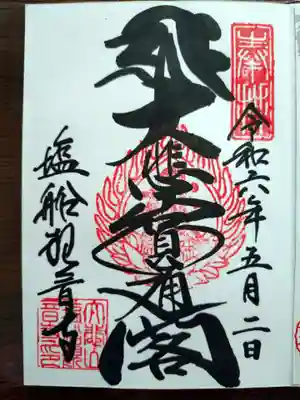 奉拝
令和六年五月二日
大悲圓通閣
塩船観音寺